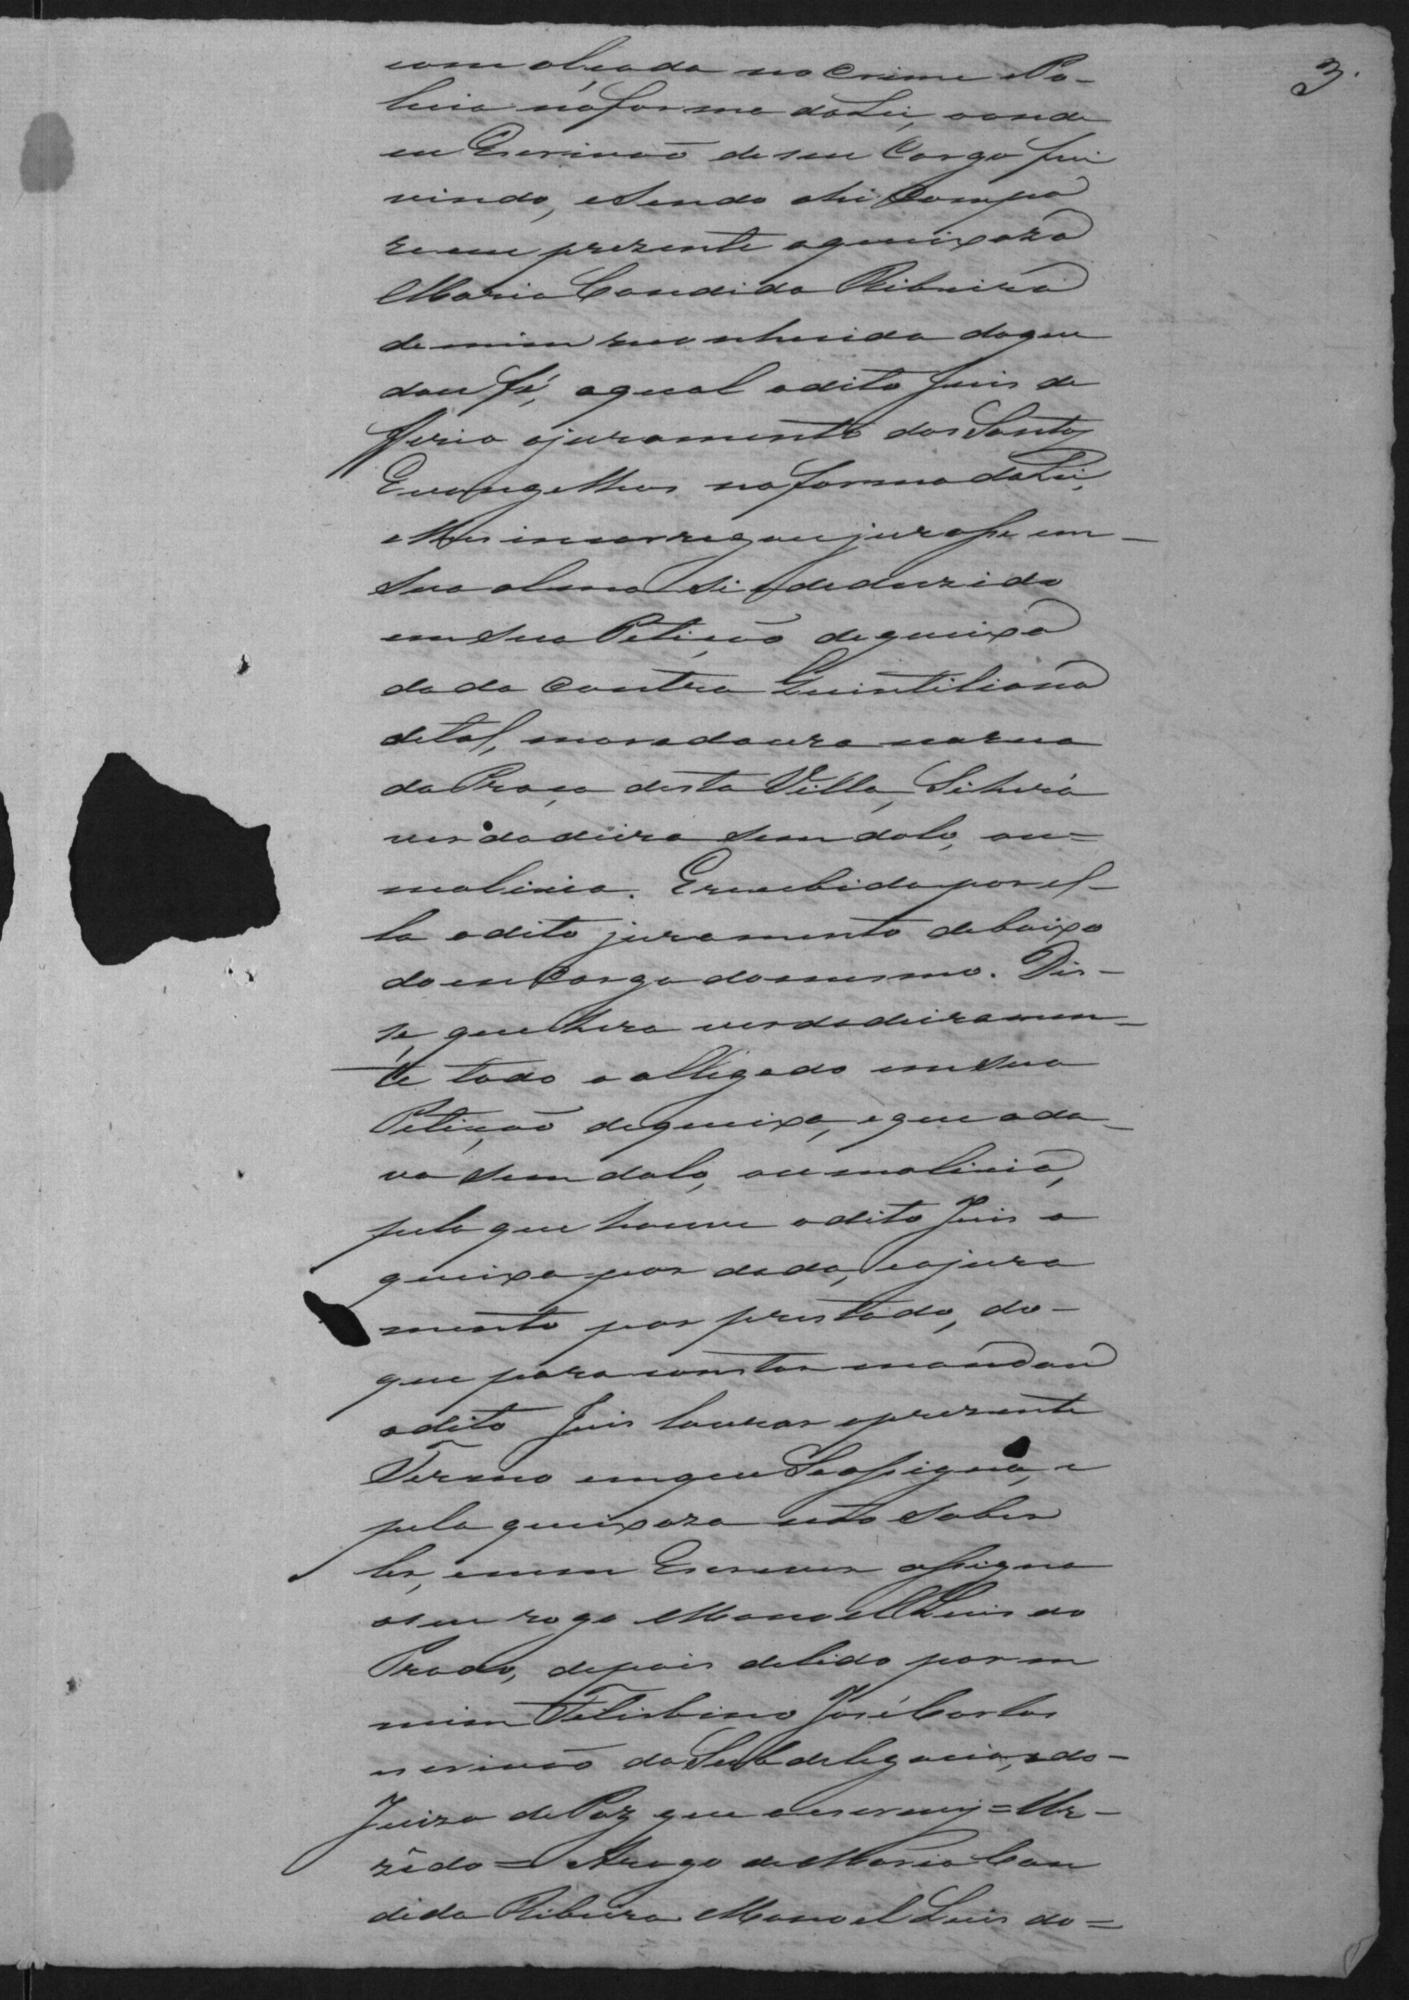 3.
com alçada no crime e Po-
licia na forma da Lei, aonde
eu Escrivaõ de seu Cargo fui
vindo, e Sendo ahi Compa
receu prezente a queixoza
Maria Candida Ribeira
de mim reconhecida do que
dou fé, a qual o dito Juis de
firio o juramento dos Santos
Evangelhos na forma da Lei,
e lhe incarregou jurasse em
Sua alma Si o deduzido
em Sua Petiçaõ de queixa
dada contra Quintiliana
de tal, moradoura na rua
da Praça desta Villa, Si hera
verdadeira Sem dolo, ou=
malicia. E recebido por el-
la o dito juramento debaixo
do en Cargo do mesmo. Dis-
se, que hera verdadeiramen-
te todo o alligado em Sua
Petiçaõ de queixa, e que a da-
va Sem dolo, ou malicia,
pelo que houve o dito Juis a
queixa por dada, e o jura
mento por prestado, do-
que para constar mandou
o dito Juis lavrar o prezente
Termo em que Se assigna, e
pela queixoza naõ Saber
ler, e nem Escrever assigna
a seu rogo Manoel Luis do
Prado, depois de lido por m
mim Felisbino José Carlos
escrivaõ da Subdelegacia, e do-
Juizo de Paz que o escrevy =
zêdo = A rogo de Maria Can
dida Ribeira Manoel Luis do=